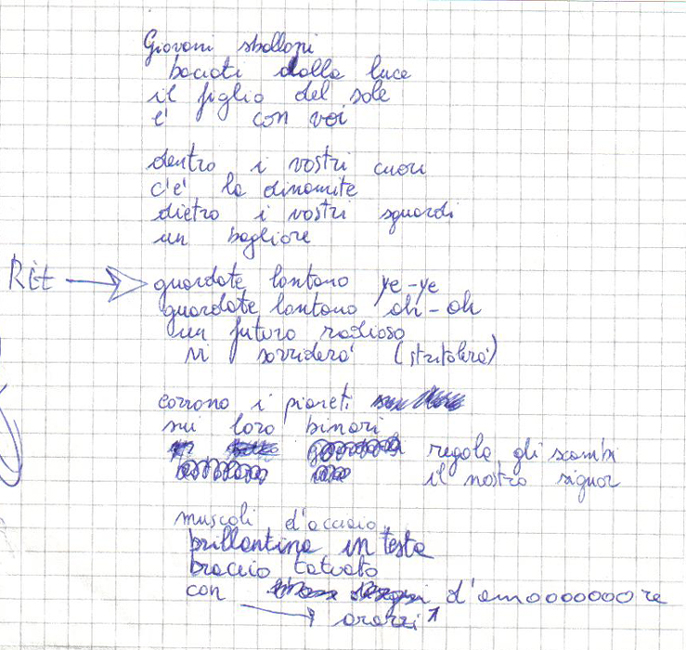 Giovani sballati
baciati dalla luce
il figlio del sole
e' con voi
dentro i vostri cuori
c'e' la dinamite
dietro i vostri sguardi
un bagliore
Rit → guardate lontano ye-ye
guardate lontano oh-oh
un futuro radioso
vi sorriderà (stritolerà)
corrono i pianeti
sui loro binari
regola gli scambi
il nostro signor
muscoli d'acciaio
brillantina in testa
braccio tatuato
con d'amooooooore